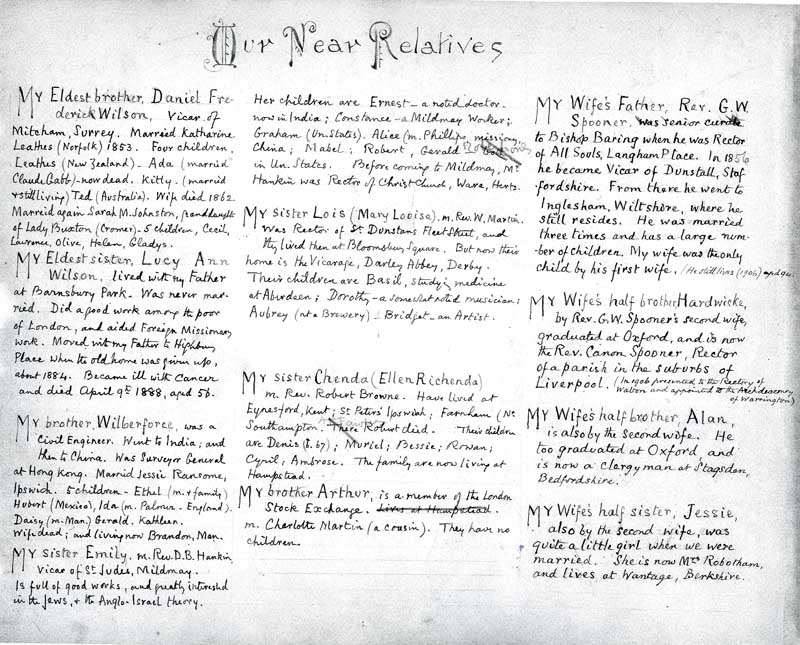 Our Near Relatives
My Eldest brother, Daniel Fre-
derick Wilson, Vicar of
Mitcham, Surrey. Married Katharine
Leathes (Norfolk) 1853. Four children,
Leathes (New Zealand) - Ada (married
Claude Gabb) - now dead. Kitty. (married
& still living) Ted (Australia). Wife died 1862.
Married again Sarah M. Johnston, granddaught
of Lady Buxton (Cromer). 5 children, Cecil,
Lawrence, Olive, Helen, Gladys.
My Eldest sister, Lucy Ann
Wilson, lived with my Father
at Barnsbury Park. Was never mar-
ried. Did a good work among the poor
of London, and aided Foreign Missionary
work. Moved with my Father to Highbury
Place when the old home was given up,
about 1884. Became ill with Cancer
and died April 9th 1888, aged 56.
My brother, Wilberforce, was a
Civil Engineer. Went to India; and
then to China. Was Surveyor General
at Hong Kong. Married Jessie Ransome,
Ipswich. 5 children - Ethel (m. & family)
Hubert (Mexico), Ida (m. Palmer. England).
Daisy (m. Man.) Gerald. Kathleen.
Wife dead; and living now Brandon, Man.
My sister Emily. m. Rev. D.B. Hankin,
Vicar of St Judes, Mildmay.
Is full of good works, and greatly interested
in the Jews, & the Anglo-Israel theory.
Her children are Ernest - a noted doctor -
now in India; Constance - a Mildmay Worker;
Graham (Un. States). Alice (m. Phillips, missiony
China; Mabel; Robert, Gerald
in Un. States. Before coming to Mildmay, Mr
Hankin was Rector of Christ Church, Ware, Herts.
My sister Lois (Mary Louisa). m. Rev. W. Martin.
Was Rector of St Dunstans Fleet Street, and
they lived then at Bloomsbury Square. But now their
home is the Vicarage, Darley Abbey, Derby.
Their children are Basil, studying medicine
at Aberdeen; Dorothy - a somewhat noted musician;
Aubrey (at a Brewery) - Bridget - an Artist.
My sister Chenda (Ellen Richenda)
m. Rev. Robert Browne. Have lived at
Eynesford, Kent; St Peter's Ipswich; Farnham (Nr.
Southampton. There Robert died. Their children
are Denis (b. 67); Muriel; Bessie; Rowan;
Cyril; Ambrose. The family are now living at
Hampstead.
My brother Arthur, is a member of the London
Stock Exchange. Lives at Hampstead.
m. Charlotte Martin (a cousin). They have no
children.
My Wife's Father, Rev. G.W.
Spooner, was senior curate
to Bishop Baring when he was Rector
of All Souls, Langham Place. In 1856
he became Vicar of Dunstall, Staf-
fordshire. From there he went to
Inglesham, Wiltshire, where he
still resides. He was married
three times and has a large num-
ber of children. My wife was the only
child by his first wife. (He still lives (1906) aged 94.
My Wife's half brother Hardwicke,
by Rev. G.W. Spooner's second wife,
graduated at Oxford, and is now
the Rev. Canon Spooner, Rector
of a parish in the suburbs of
Liverpool. (In 1906 presented to the Rectory of
Walton and appointed to the Archdeaconry
of Warrington)
My Wife's half brother, Alan,
is also by the second wife. He
too graduated at Oxford, and
is now a Clergyman at Stagsden,
Bedfordshire.
My Wife's half sister, Jessie,
also by the second wife, was
quite a little girl when we were
married. She is now Mrs Robotham,
and lives at Wantage, Berkshire.